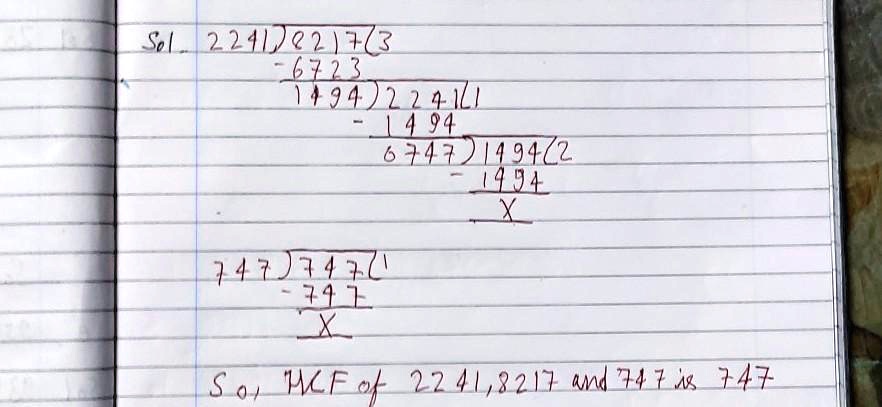 Sol- 2241)8217(3
-6723
1494)2241(1
- 1494
0747)1494(2
- 1494
X
747)747(1
-747
X
So, HCF of 2241,8217 and 747 is 747